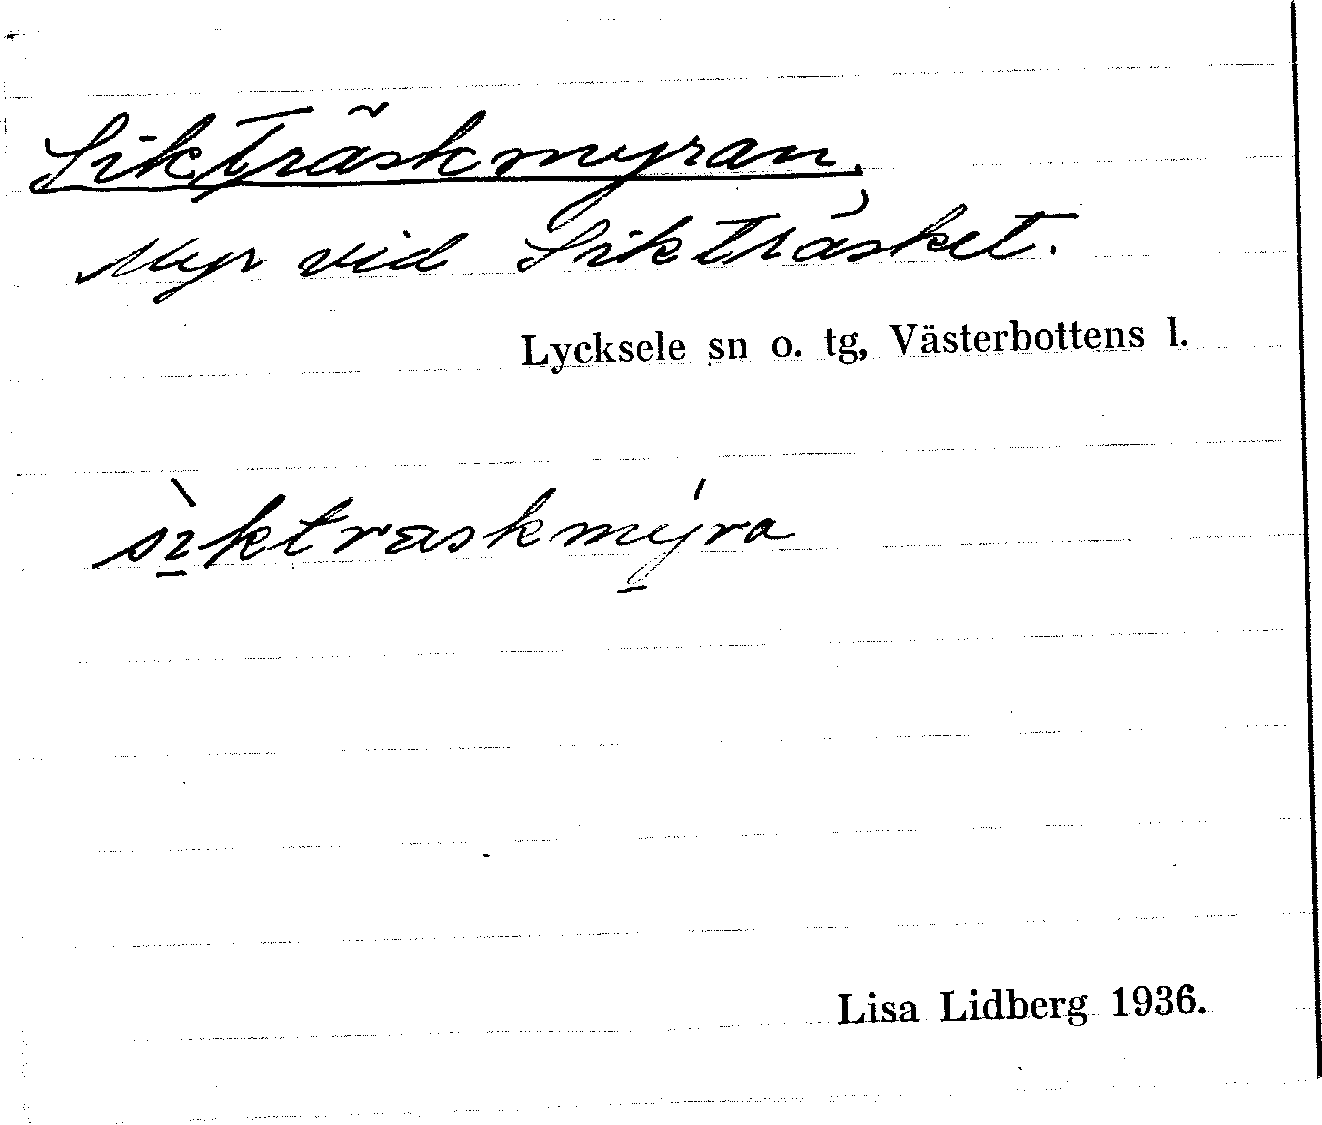 Sikträskmyran.
Myr vid Sikträsket.
Lycksele sn o. tg, Västerbottens l.
sìktraskmýra
Lisa Lidberg 1936.